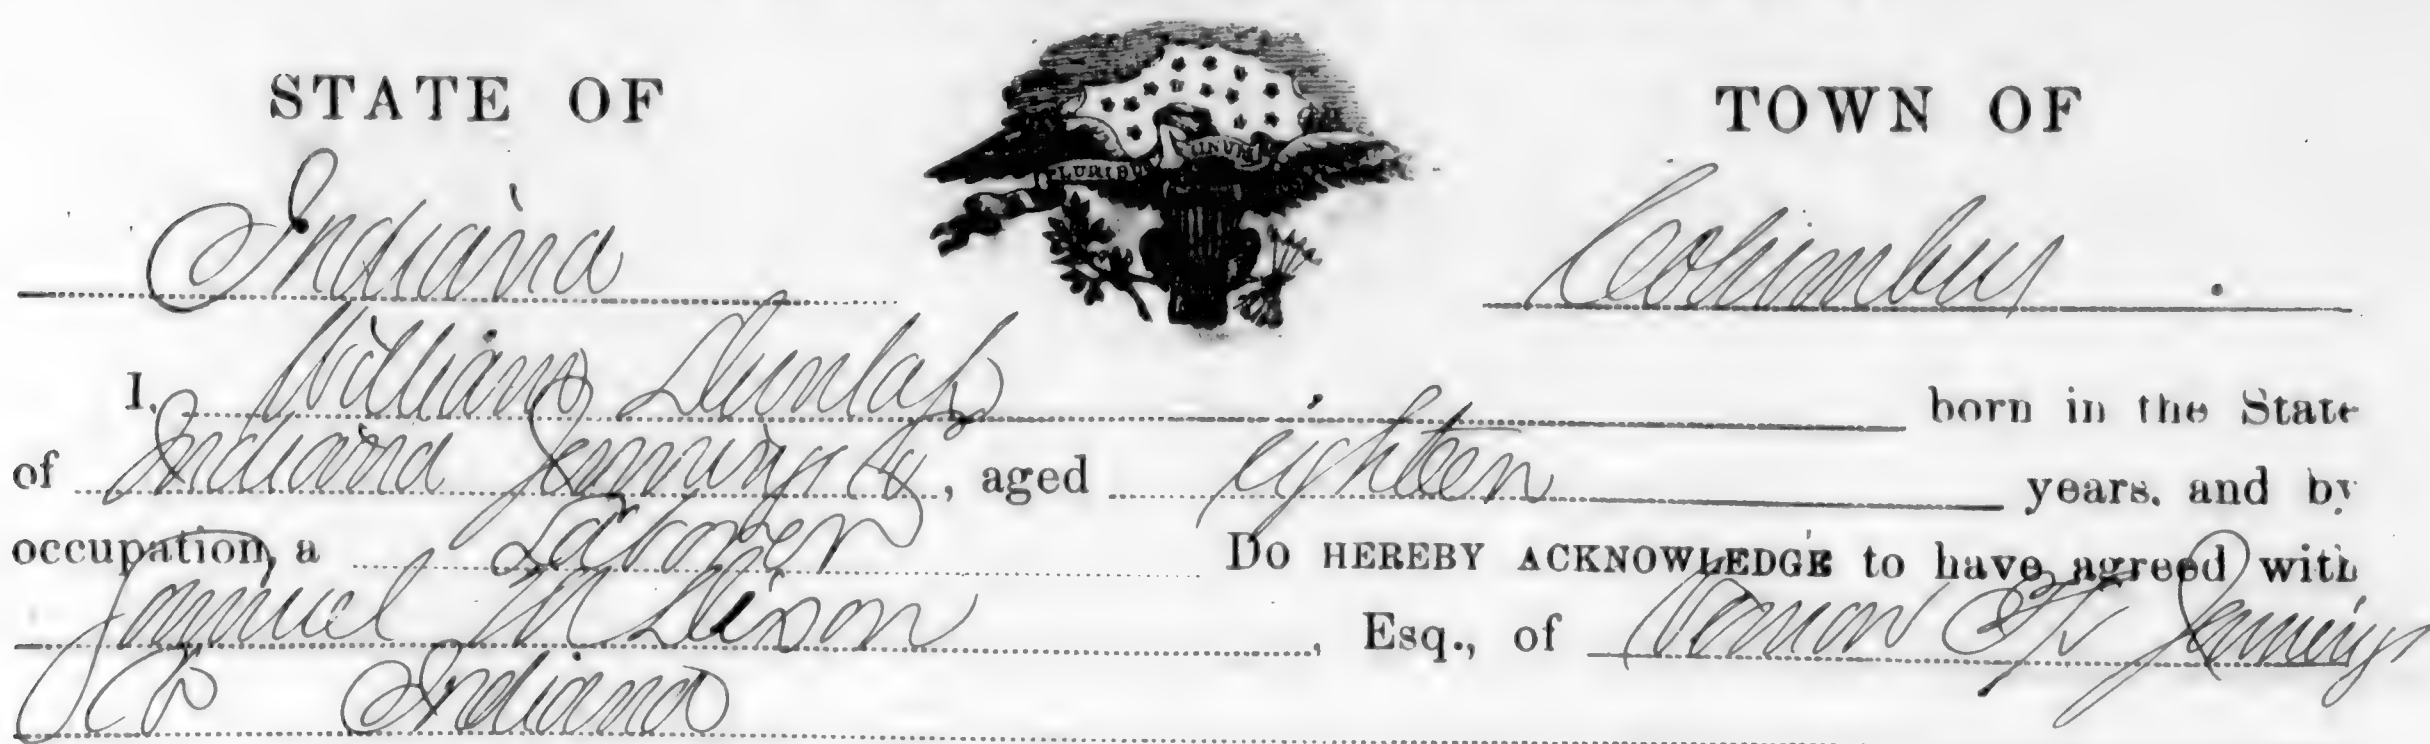 STATE OF
TOWN OF
PLURIBU UNUM
Indiana
Columbus .
I, William Dunlap born in the State
of Indiana Jennings Co, aged eighteen years, and by
occupation, a Laborer DO HEREBY ACKNOWLEDGE to have agreed with
Samuel M Dixon, Esq., of Vernon Jennings
Co Indiana